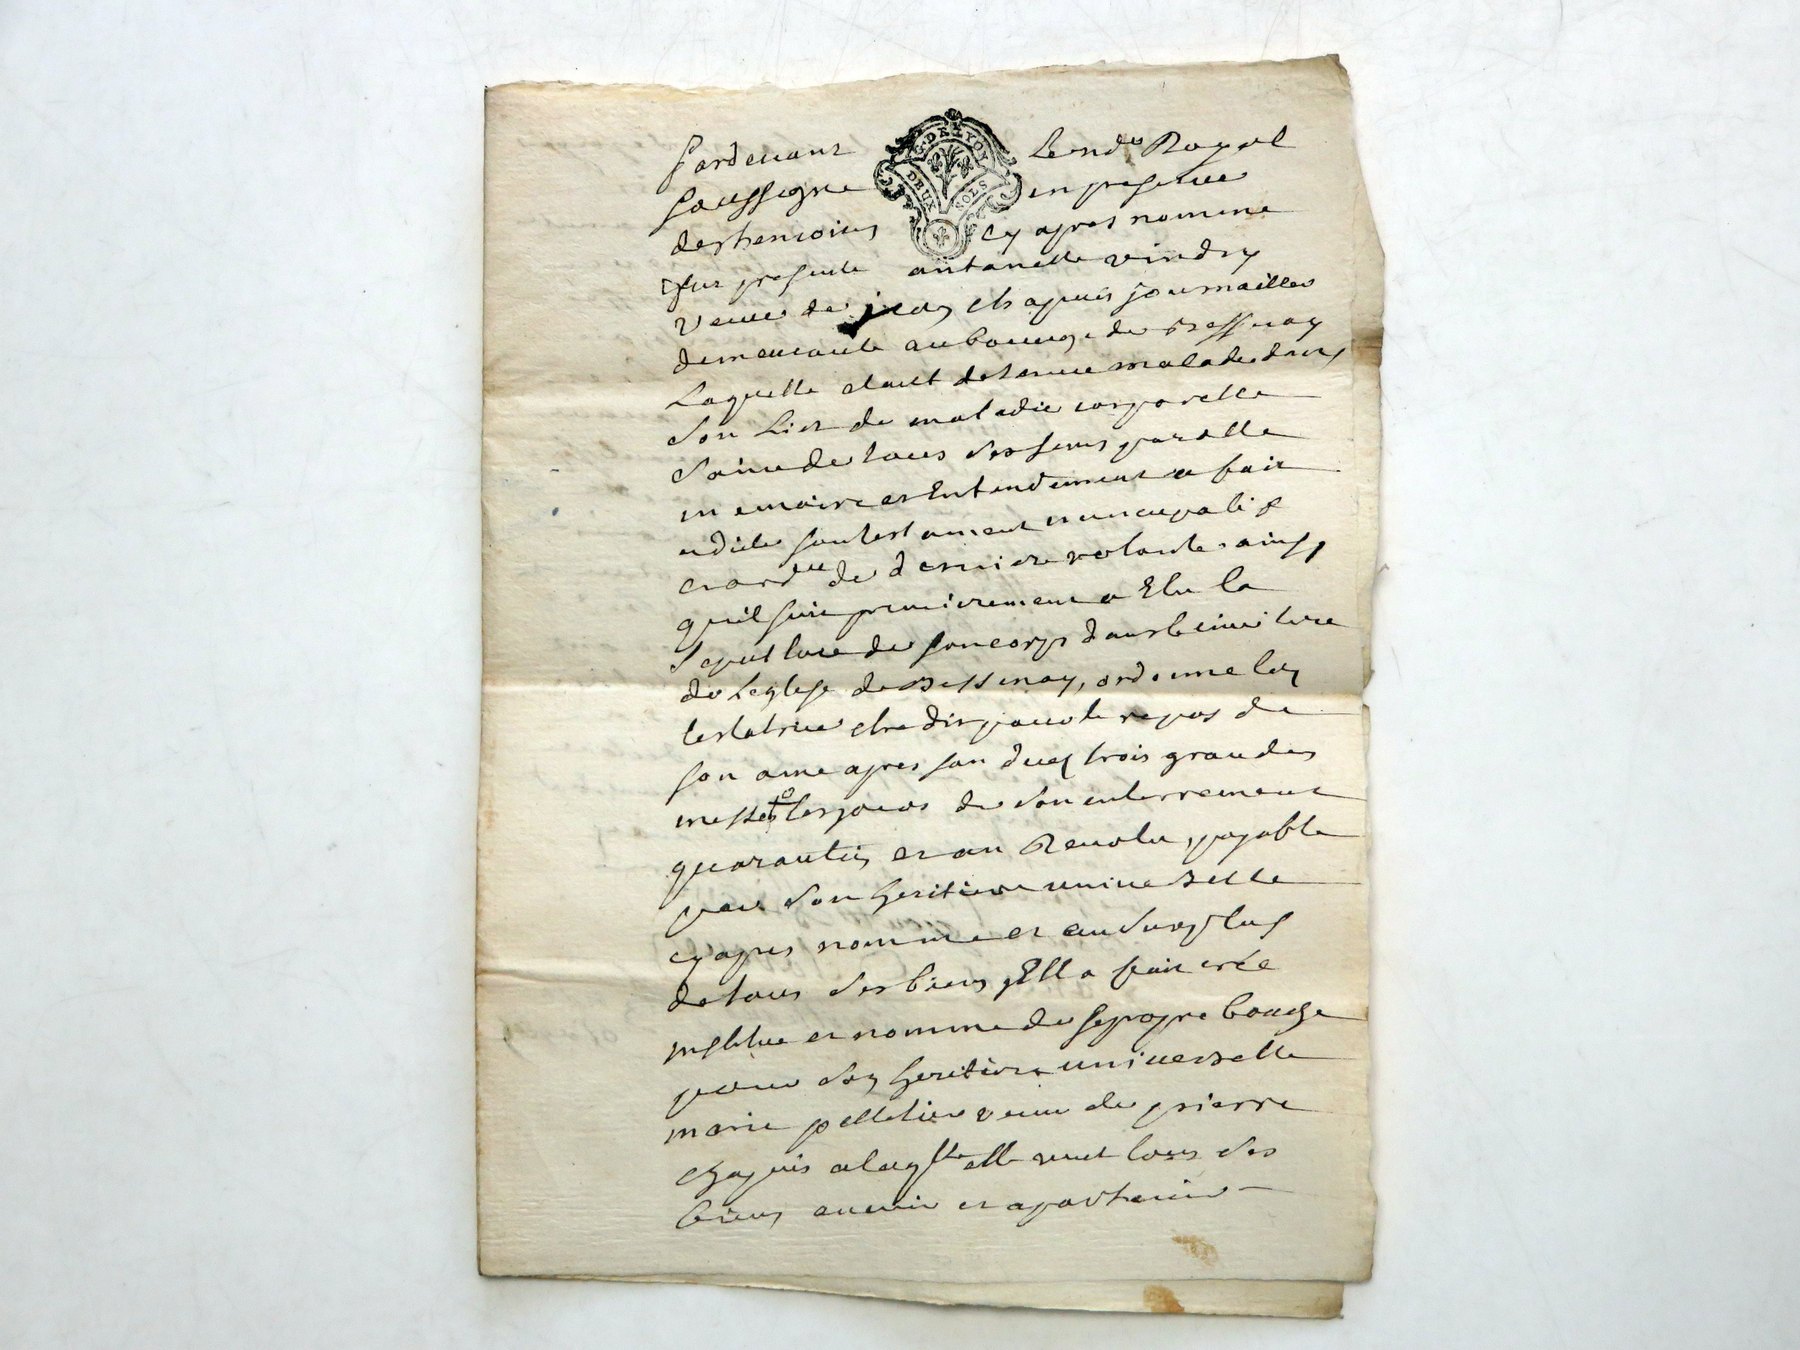 Pardevant Le nore Royal
G. DE LYON
DEUX SOLS
soussigne en presence
des temoins cy apres nomme
fut presente antoinette vindry
veuve de jean chapuis journaillier
demeurante au bourg de Bessenay
Laquelle etant detenue malade dans
son Lict de maladie corporelle
saine de tous ses sens parolle
memoire et Entendement a fait
et dicte son testament nuncupatif
et ordce de derniere volonte ainsy
quil suit premierement a Elu la
sepulture de son corps dans le cimetiere
de Leglise de Bessenay, ordonne lad
testatrice etre dit pour le repos de
son ame apres son deces trois grandes
messes les jours de son enterrement
quarantin et an Revolu, payable
par son heritiere universelle
cy apres nomme et au surplus
de tous ses biens Ell a fait cree
institue et nomme de sa propre bouche
pour son heritiere universelle
marie pelletier veuve de pierre
chapuis a laqlle elle veut tous ses
biens avenir et apartenir